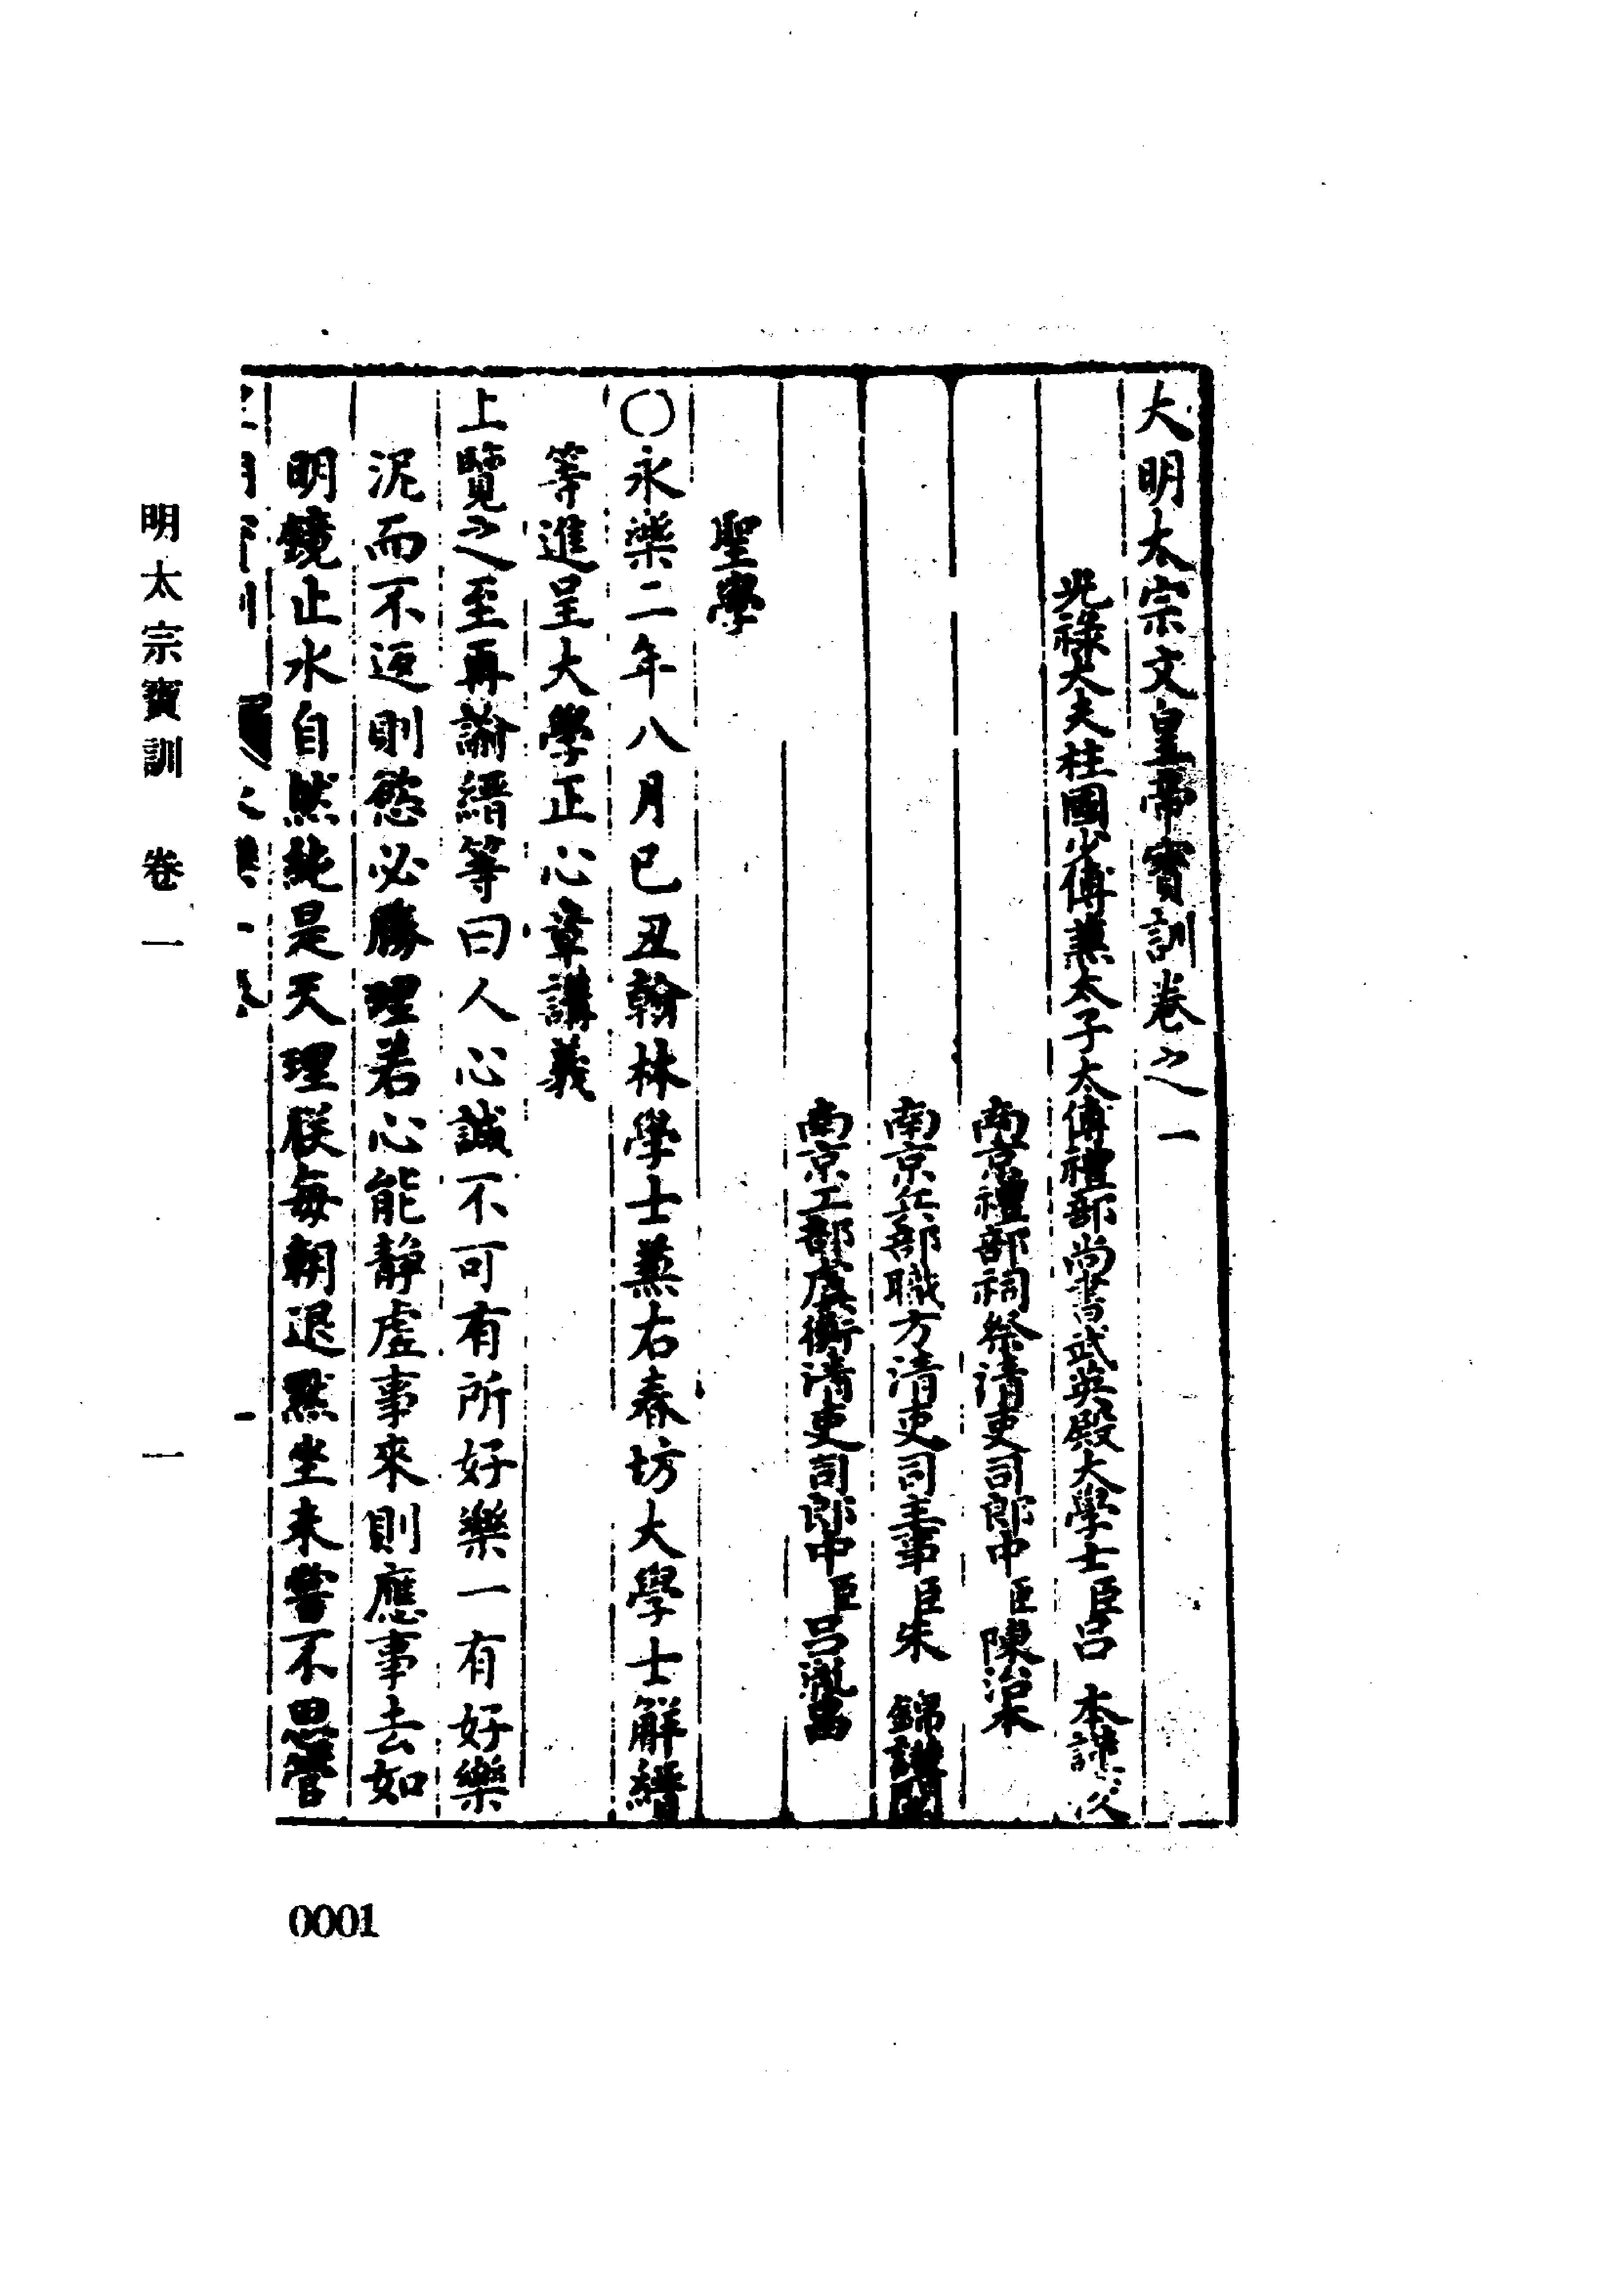 大明太宗文皇帝寶訓卷之一
光祿大夫柱國少傅兼太子太傅禮部尚書武英殿大學士臣呂 本謹
南京禮部祠祭清吏司郎中臣陳治本
南京兵部職方清吏司主事臣朱 錦謹閱
南京工部虞衡清吏司郎中臣呂胤昌
聖學
○永樂二年八月己丑翰林學士兼右春坊大學士解縉
等進呈大學正心章講義
上覽之至再諭縉等曰人心誠不可有所好樂一有好樂
泥而不返則慾必勝理若心能靜虛事來則應事去如
明鏡止水自然純是天理朕每朝退默坐未嘗不思管
明太宗寶訓 卷一 一
0001